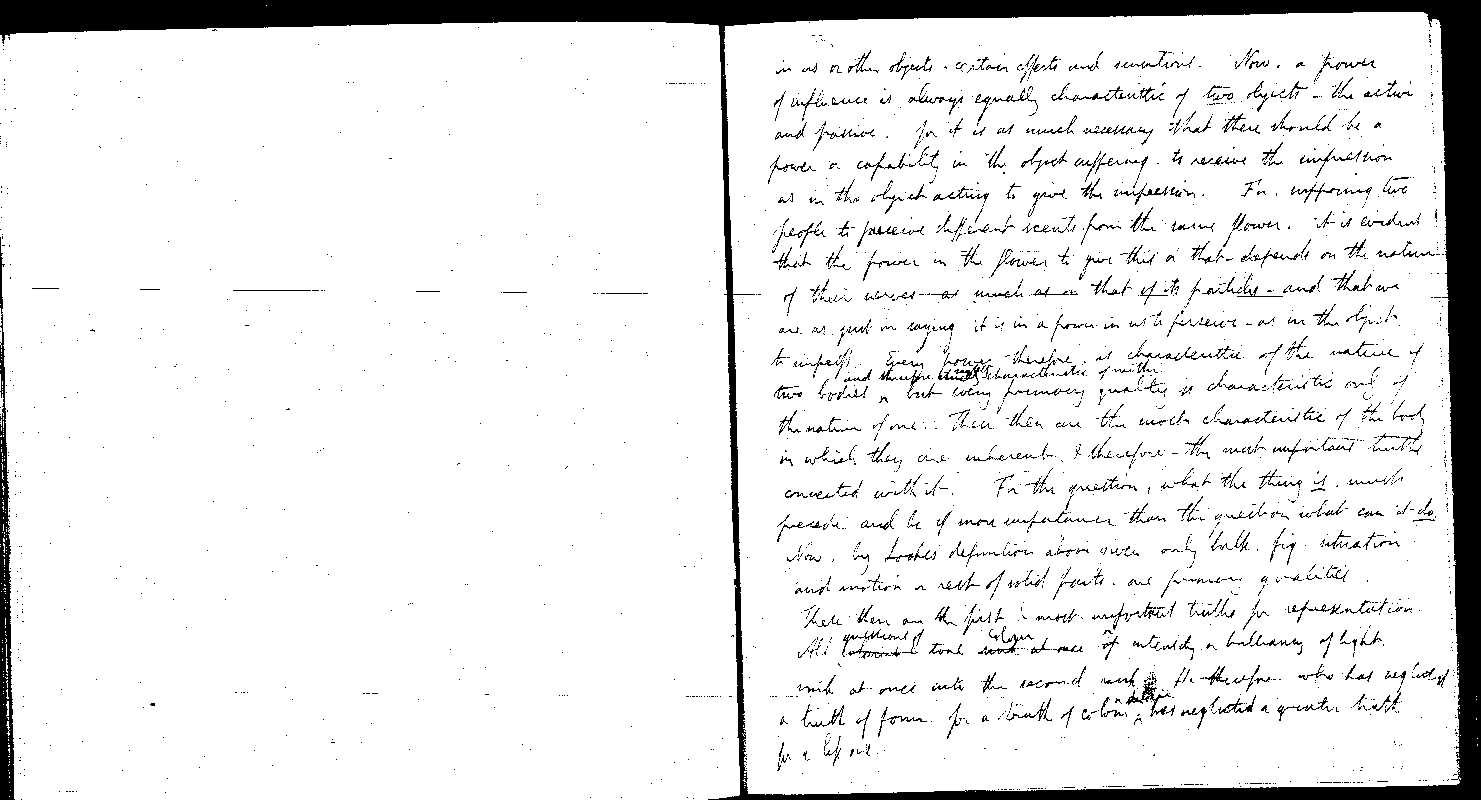 in us or other objects - certain effects and sensations. Now. a power
of influence is always equally characteristic of two objects - the active
and passive. for it is as much necessary that there should be a
power or capability in the object suffering. to receive the impression
as in the object acting to give the impression. For. supposing two
people to perceive different scents from the same flower. it is evident
that the power in the flower to give this or that depends on the nature
of their nerves as much as on that of its particles - and that we
are as just in saying it is in a power in us to perceive - as in the object
to impress. Every power therefore is characteristic of the nature of
and therefore characteristic of neither
two bodies ^ but every primary quality is characteristic only of
the nature of one. These then are the most characteristic of the body
in which they are inherent & therefore - the most important truths
connected with it. For the question, what the thing is. must
precede and be of more importance than the question what can it do.
Now. by Lockes definition above given only bulk. fig. situation
and motion or rest of solid parts. are primary qualities.
These then are the first & most important truths for representation
questions of colour
All tone sink at once or of intensity or brilliancy of light.
sink at once into the second rank He therefore who has neglected
a truth of form for a truth of colour has neglected a greater truth
for a less one.